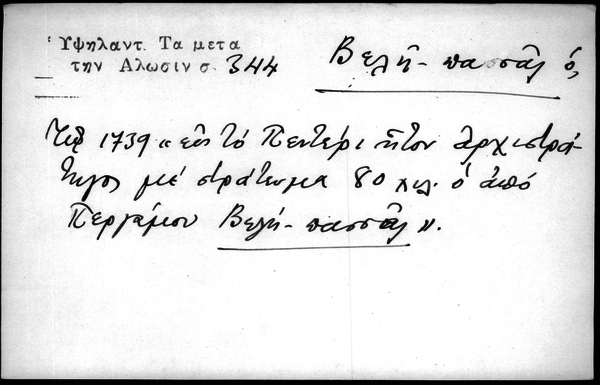 Ὑψηλαντ. Τα μετα
την Αλωσιν σ. 344
Βελῆ-πασσᾶς ὁ,
1739 « εἰς τό Πεντέρι ἦτον ἀρχιστρά-
τηγος μέ στράτευμα 80 χιλ. ὁ ἀπό
Περγάμου Βελῆ-πασσᾶς ».